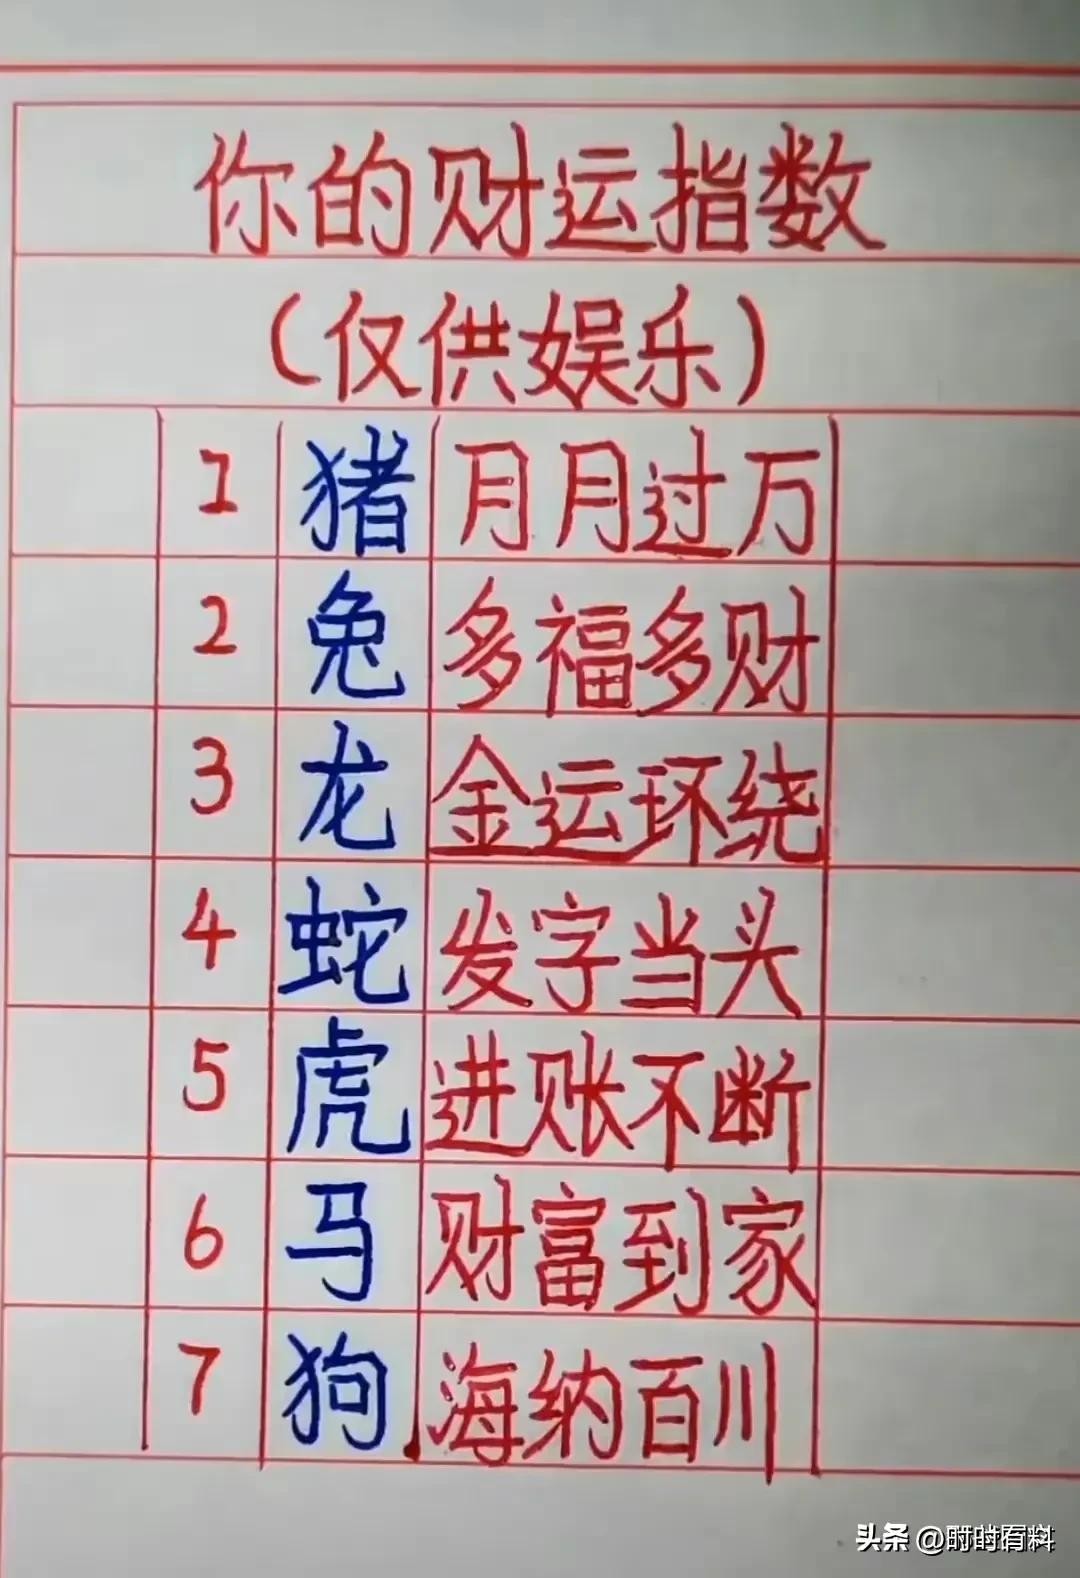 你的财运指数
（仅供娱乐）
1 猪 月月过万
2 兔 多福多财
3 龙 金运环绕
4 蛇 发字当头
5 虎 进账不断
6 马 财富到家
7 狗 海纳百川
头条 @时时有料